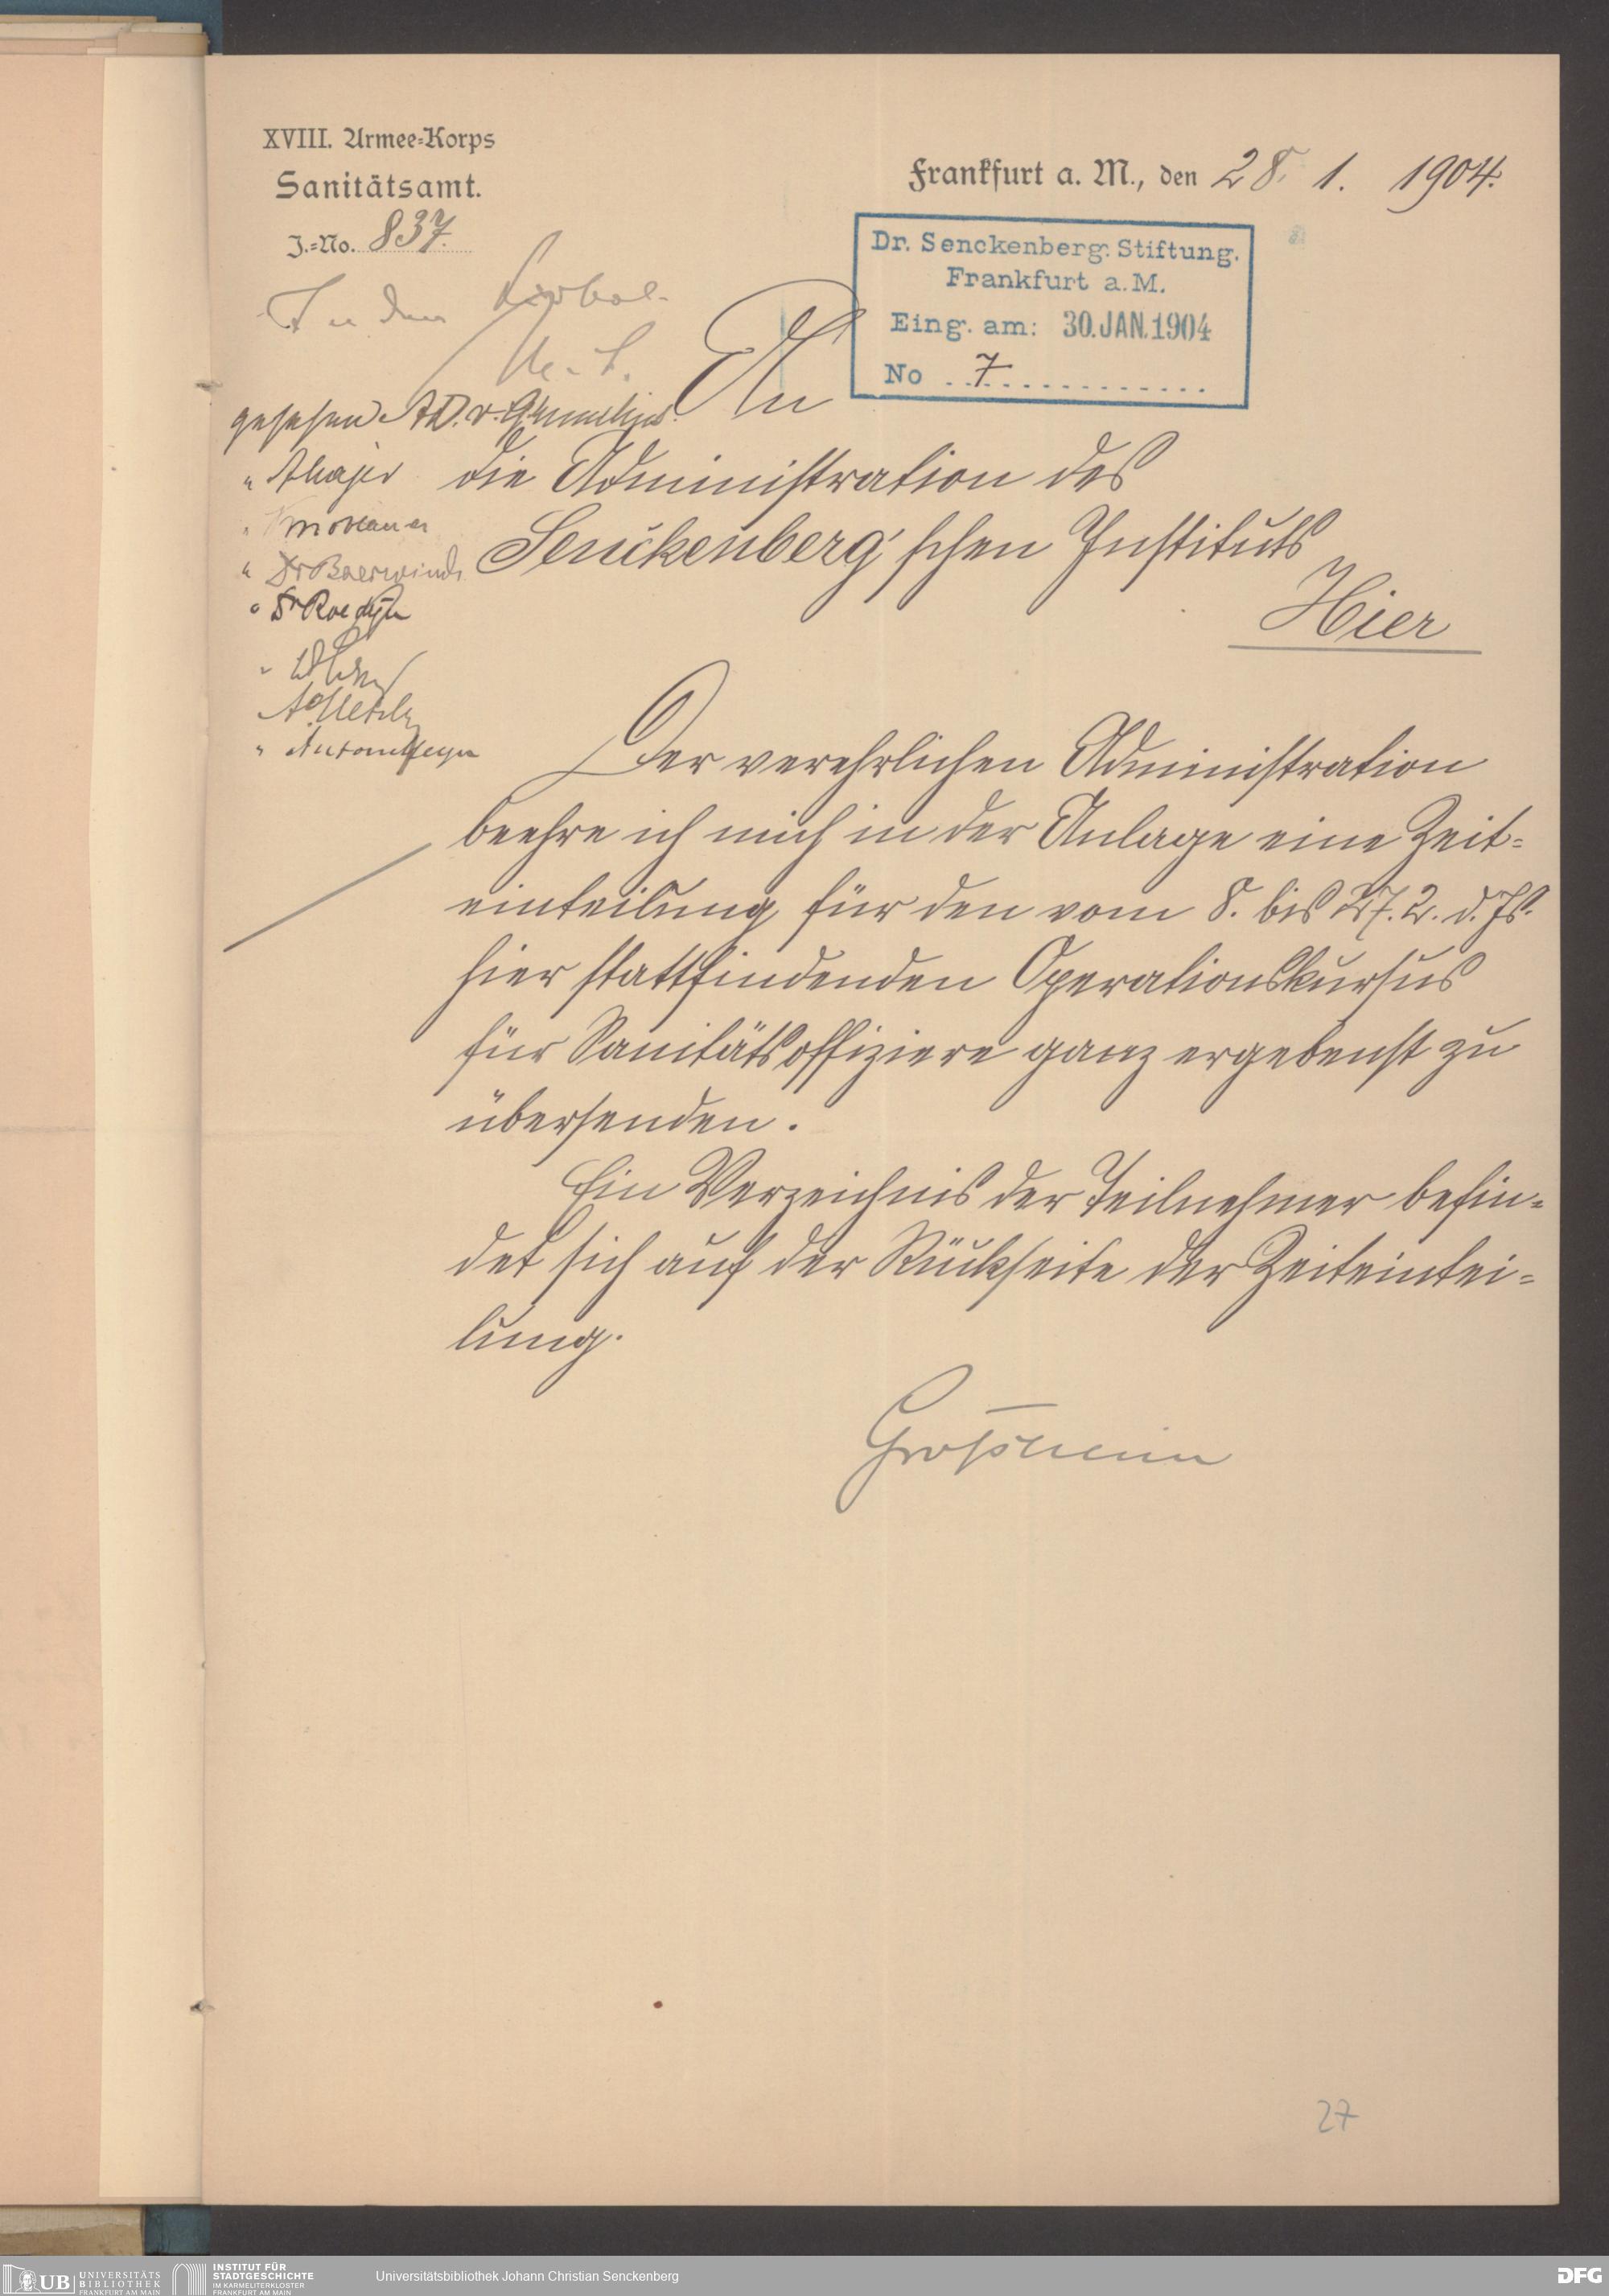 XVIII. Armee-Korps
Sanitätsamt.
J.-No. 837.
Frankfurt a. M., den 28. 1. 1904.
Dr. Senckenberg. Stiftung.
Frankfurt a. M.
Eing. am: 30. JAN. 1904
No 7
gesehen
An
die Administration des
Senckenberg'schen Instituts
Hier
" Dr Baerwindt
Der verehrlichen Administration
beehre ich mich in der Anlage eine Zeit=
einteilung für den vom 8. bis 27. 2. d. Js.
hier stattfindenden Operationskursus
für Sanitätsoffiziere ganz ergebenst zu
übersenden.
Ein Verzeichnis der Teilnehmer befin=
det sich auf der Rückseite der Zeiteintei=
lung.
Großheim
27
UB UNIVERSITÄTS BIBLIOTHEK FRANKFURT AM MAIN
INSTITUT FÜR STADTGESCHICHTE IM KARMELITERKLOSTER FRANKFURT AM MAIN
Universitätsbibliothek Johann Christian Senckenberg
DFG